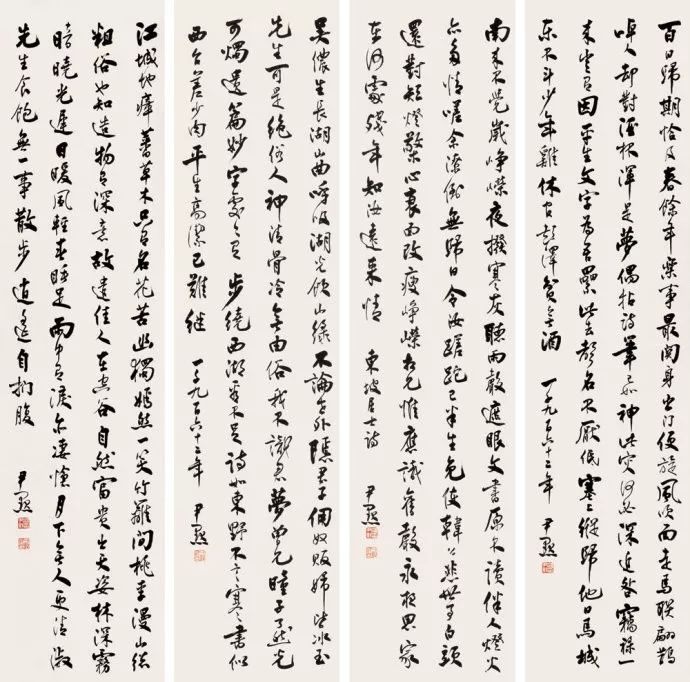 百日歸期恰及春餘年樂事最關身出門便旋風吹面走馬聯翩鵲
啅人却對酒杯渾是夢偶拈詩筆已如神此灾何必深追咎竊祿一
來豈有因平生文字為吾累此去聲名不厭低塞上縱歸他日馬城
東不斗少年雞休官彭澤貧無酒 一千九百六十三年 尹默
南來不覺歲崢嶸夜撥寒灰聽雨聲遮眼文書原不讀伴人燈火
亦多情嗟余潦倒無歸日今汝蹉跎已半生免使韓公悲世事白頭
還對短燈檠心衰面改瘦崢嶸相見惟應識舊聲永夜思家
在何處殘年知汝遠來情 東坡居士詩
吳儂生長湖山曲呼吸湖光飲山綠不論世外隱君子傭奴販婦皆冰玉
先生可是絕俗人神清骨冷無由俗我不識君曾夢見瞳子了然光
可燭遺篇妙字處處有步繞西湖看不足詩如東野不言寒書似
西台差少肉平生高潔已難繼 一千九百六十三年 尹默
江城地瘴蕃草木只有名花苦幽獨嫣然一笑竹籬間桃李漫山總
粗俗也知造物有深意故遣佳人在空谷自然富貴出天姿林深霧
暗曉光遲日暖風輕春睡足雨中有淚亦凄愴月下無人更清淑
先生食飽無一事散步逍遙自捫腹 尹默